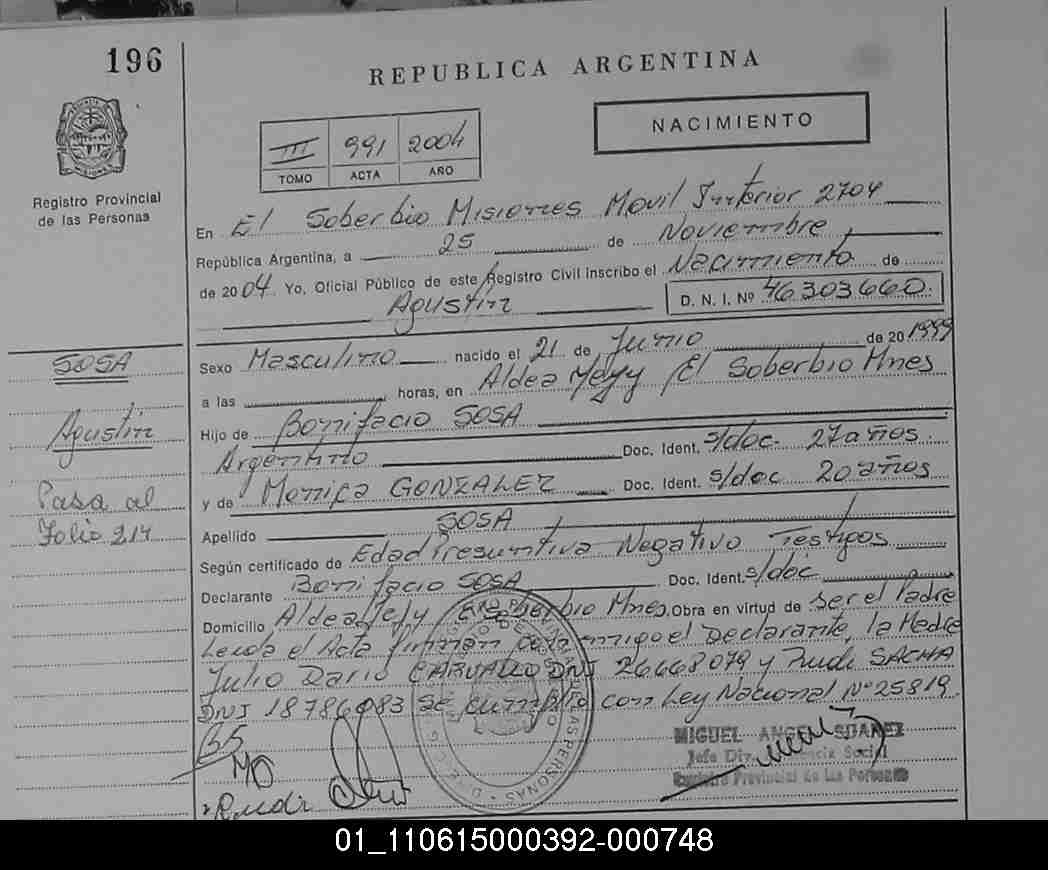 196
REPUBLICA ARGENTINA
Registro Provincial
de las Personas
III 991 2004
TOMO ACTA AÑO
NACIMIENTO
En El Soberbio Misiones Movil Interior 2704
República Argentina, a 25 de Noviembre
de 2004. Yo, Oficial Público de este Registro Civil Inscribo el Nacimiento de
Agustin D. N. I. Nº 46303660.
SOSA
Agustin
Pasa al
Folio 214
Sexo Masculino nacido el 21 de Junio de 20 1999
a las horas, en Aldea / El Soberbio Mnes
Hijo de Bonifacio SOSA
Argentino Doc. Ident. s/doc. 27 años.
y de Monica GONZALEZ Doc. Ident. s/doc 20 años
Apellido SOSA
Según certificado de Edad Presuntiva Negativo Testigos
Declarante Bonifacio SOSA Doc. Ident. s/doc
Domicilio Aldea El Soberbio Mnes. Obra en virtud de ser el Padre
Leida el Acta firman conmigo el Declarante, la Madre
Julio Dario CARVALLO DNI 26668079 y SACHA
DNI 18786083 se cumplio con Ley Nacional Nº 25819
BS
MG
MIGUEL ANGEL SUAREZ
Jefe Div. Social
Registro Provincial de las Personas
01_110615000392-000748